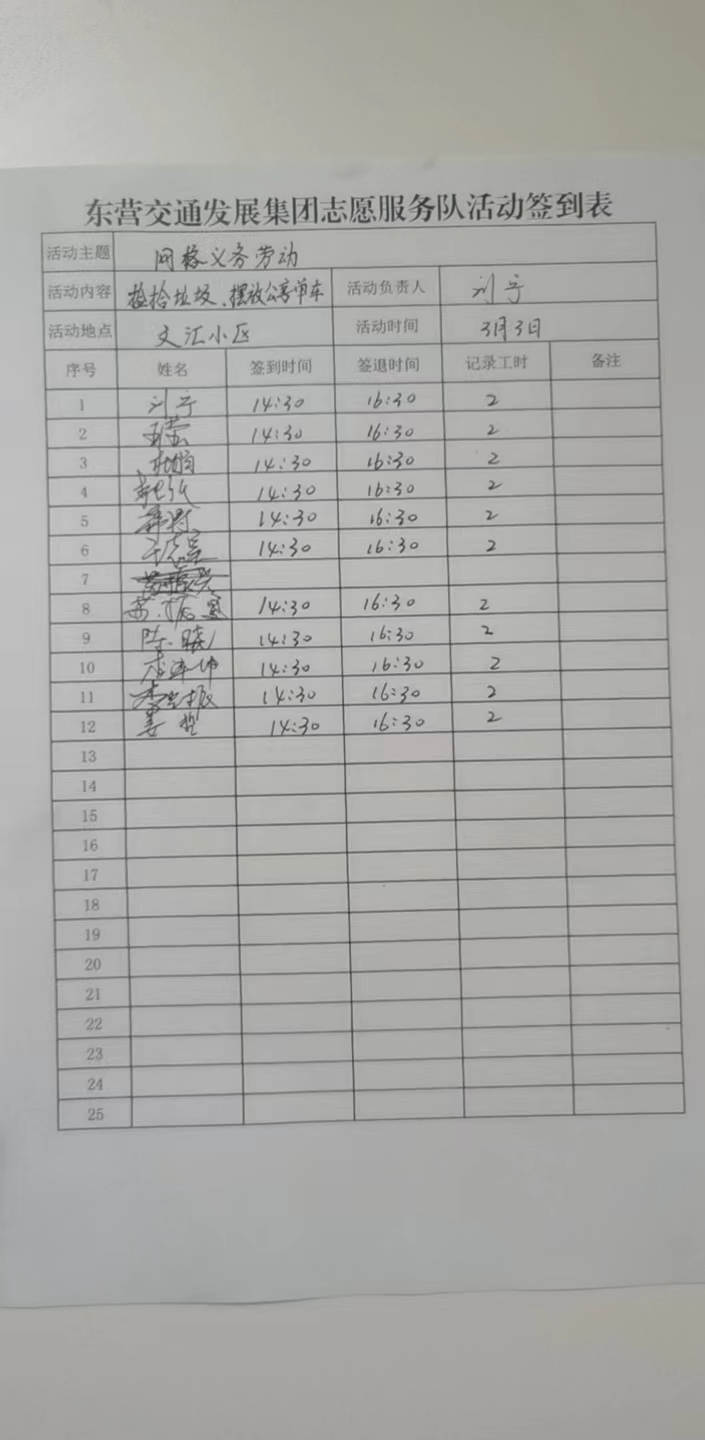 东营交通发展集团志愿服务队活动签到表
活动主题 网格义务劳动
活动内容 捡拾垃圾、摆放公享单车 活动负责人 刘宁
活动地点 文汇小区 活动时间 3月3日
序号 姓名 签到时间 签退时间 记录工时 备注
1 刘宁 14:30 16:30 2
2 14:30 16:30 2
3 14:30 16:30 2
4 14:30 16:30 2
5 14:30 16:30 2
6 14:30 16:30 2
7
8 14:30 16:30 2
9 陈晓 14:30 16:30 2
10 14:30 16:30 2
11 14:30 16:30 2
12 姜 14:30 16:30 2
13
14
15
16
17
18
19
20
21
22
23
24
25